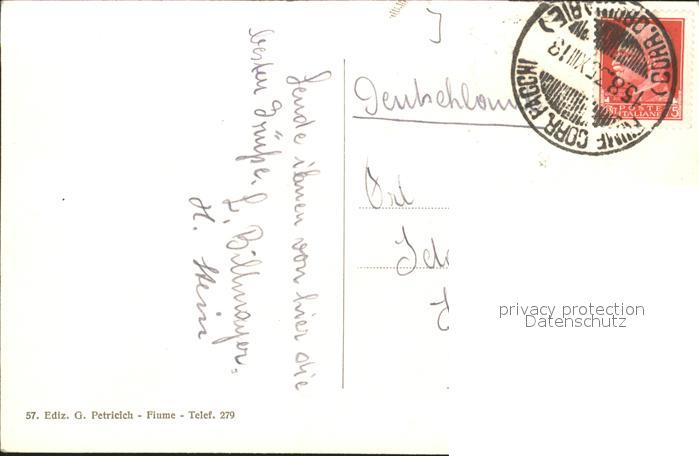 Sende ihnen von hier die
besten Grüße.
L. Billmayer.
H. Stein
Deutschlan
Ort
57. Ediz. G. Petricich - Fiume - Telef. 279
FIUME CORR. PACCHI
15.8.35 XIII 13
POSTE
ITALIANE
75
privacy protection
Datenschutz